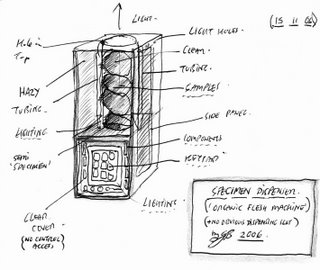 LIGHT.
(15 11 06)
HOLE IN
TOP
LIGHT HOLES
CLEAR
TUBING.
HAZY
TUBING.
SAMPLES
LIGHTING
SIDE PANEL
SEMI
'SPECIMEN'
COMPONENTS
KEYPAD
CLEAR
COVER
(NO CONTROL)
ACCESS)
LIGHTING
SPECIMEN DISPENSER.
('ORGANIC FLESH MACHINE')
(+ NO OBVIOUS DISPENSING SLOT)
2006.